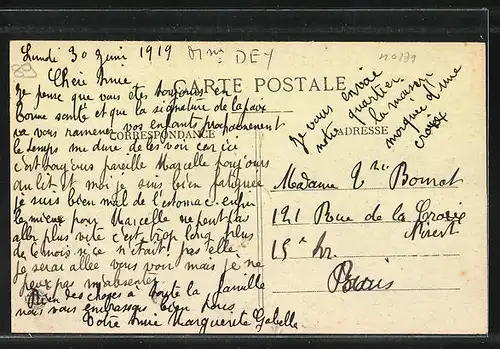 Lundi 30 Juin 1919
Mme DEY
Chère Amie
CARTE POSTALE
CORRESPONDANCE
ADRESSE
Je pense que vous êtes toujours en
bonne santé et que la signature de la paix
va vous ramener vos enfants prochainement
le temps me dure de les voir car ici
c'est toujours pareille Marcelle toujours
au lit et moi je suis bien fatiguée
je suis bien mal de l'estomac enfin
le mieux pour Marcelle ne peut pas
aller plus vite c'est trop long plus
de 6 mois si ce n'était pas elle
je serai allée vous voir mais je ne
peux pas m'absenter
Bien des choses à toute la famille
nous vous embrassons bien fort
Votre Amie Marguerite Gabelle
Je vous envoie
notre quartier
la maison
marquée d'une
croix
Madame
121 Rue de la Croix
Nivert
15e Arr.
Paris